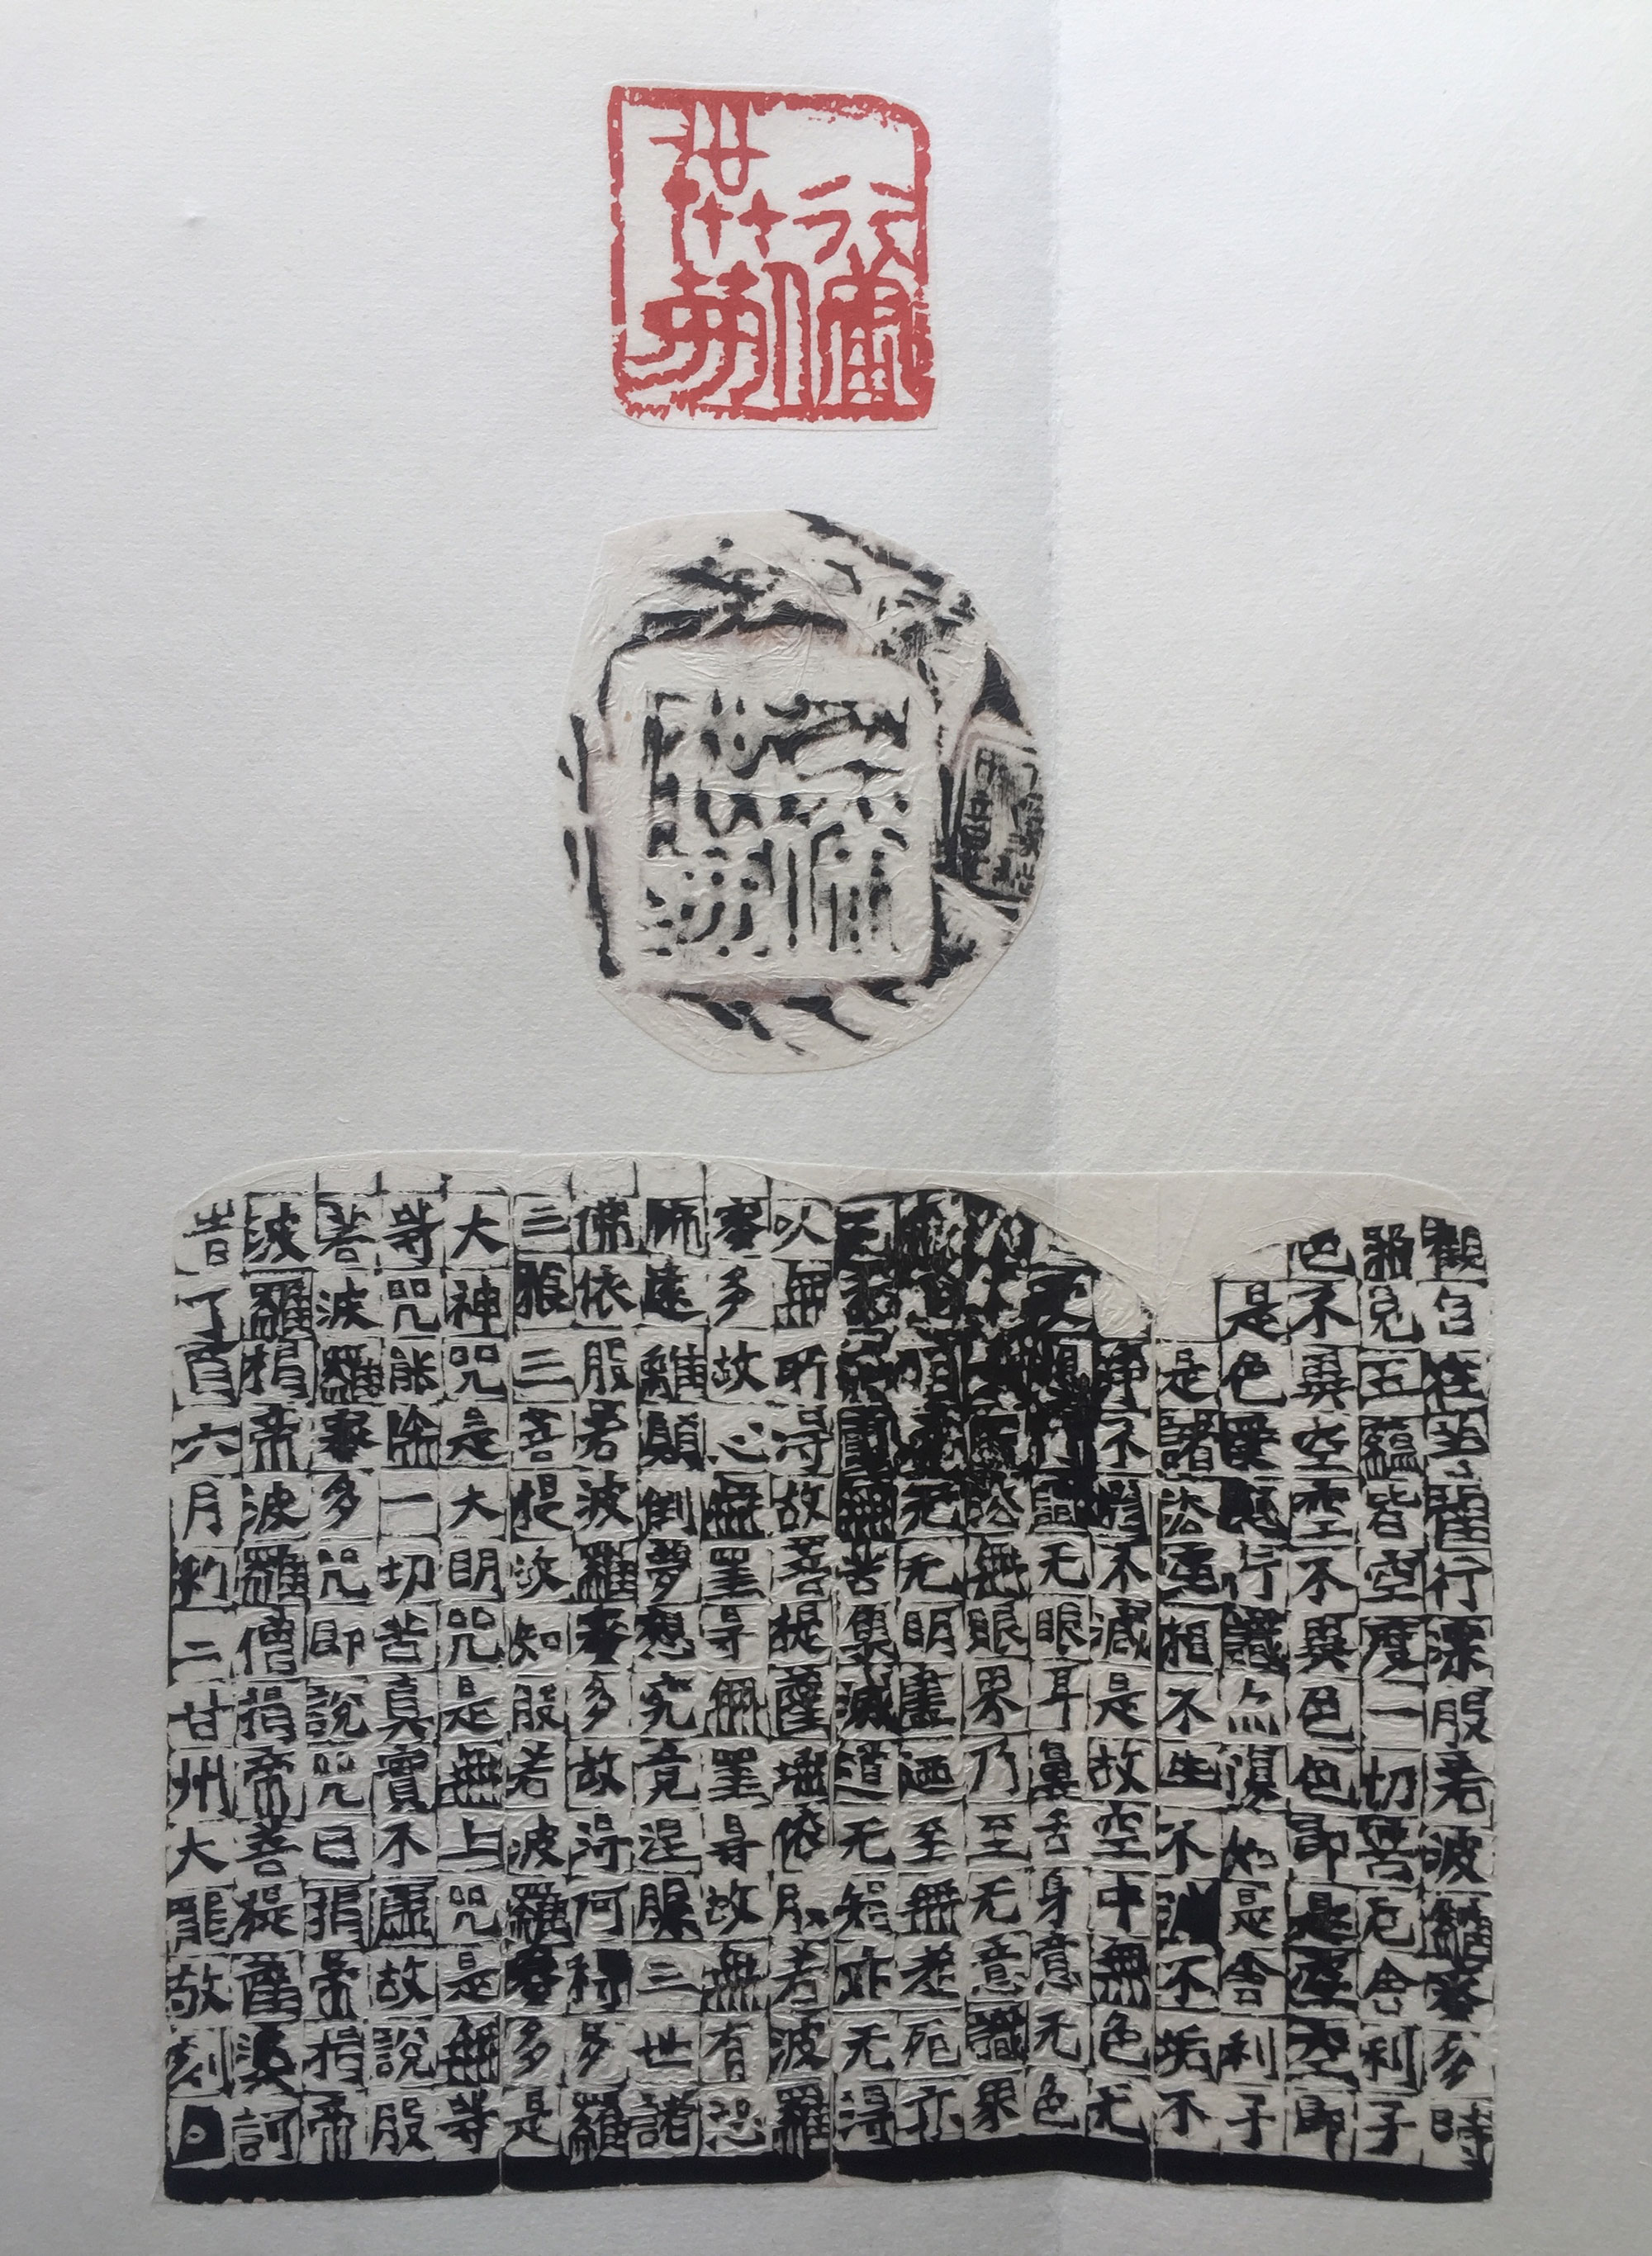 觀自在菩薩行深般若波羅蜜多時
照見五蘊皆空度一切苦厄舍利子
色不異空空不異色色即是空空即
是色受想行識亦復如是舍利子
是諸法空相不生不滅不垢不
淨不增不減是故空中無色无
受想行識无眼耳鼻舌身意无色
觸法無眼界乃至无意識界
无无明盡迺至無老死亦
盡無苦集滅道无智亦无得
以無所得故菩提薩埵依般若波羅
蜜多故心無罣导無罣导故無有恐
怖遠離顛倒夢想究竟涅槃三世諸
佛依般若波羅蜜多故得阿耨多羅
三藐三菩提故知般若波羅蜜多是
大神咒是大明咒是無上咒是無等
等咒能除一切苦真實不虛故說般
若波羅蜜多咒即說咒曰揭帝揭帝
波羅揭帝波羅僧揭帝菩提薩婆訶
旹丁酉六月初二甘州大龍敬刻